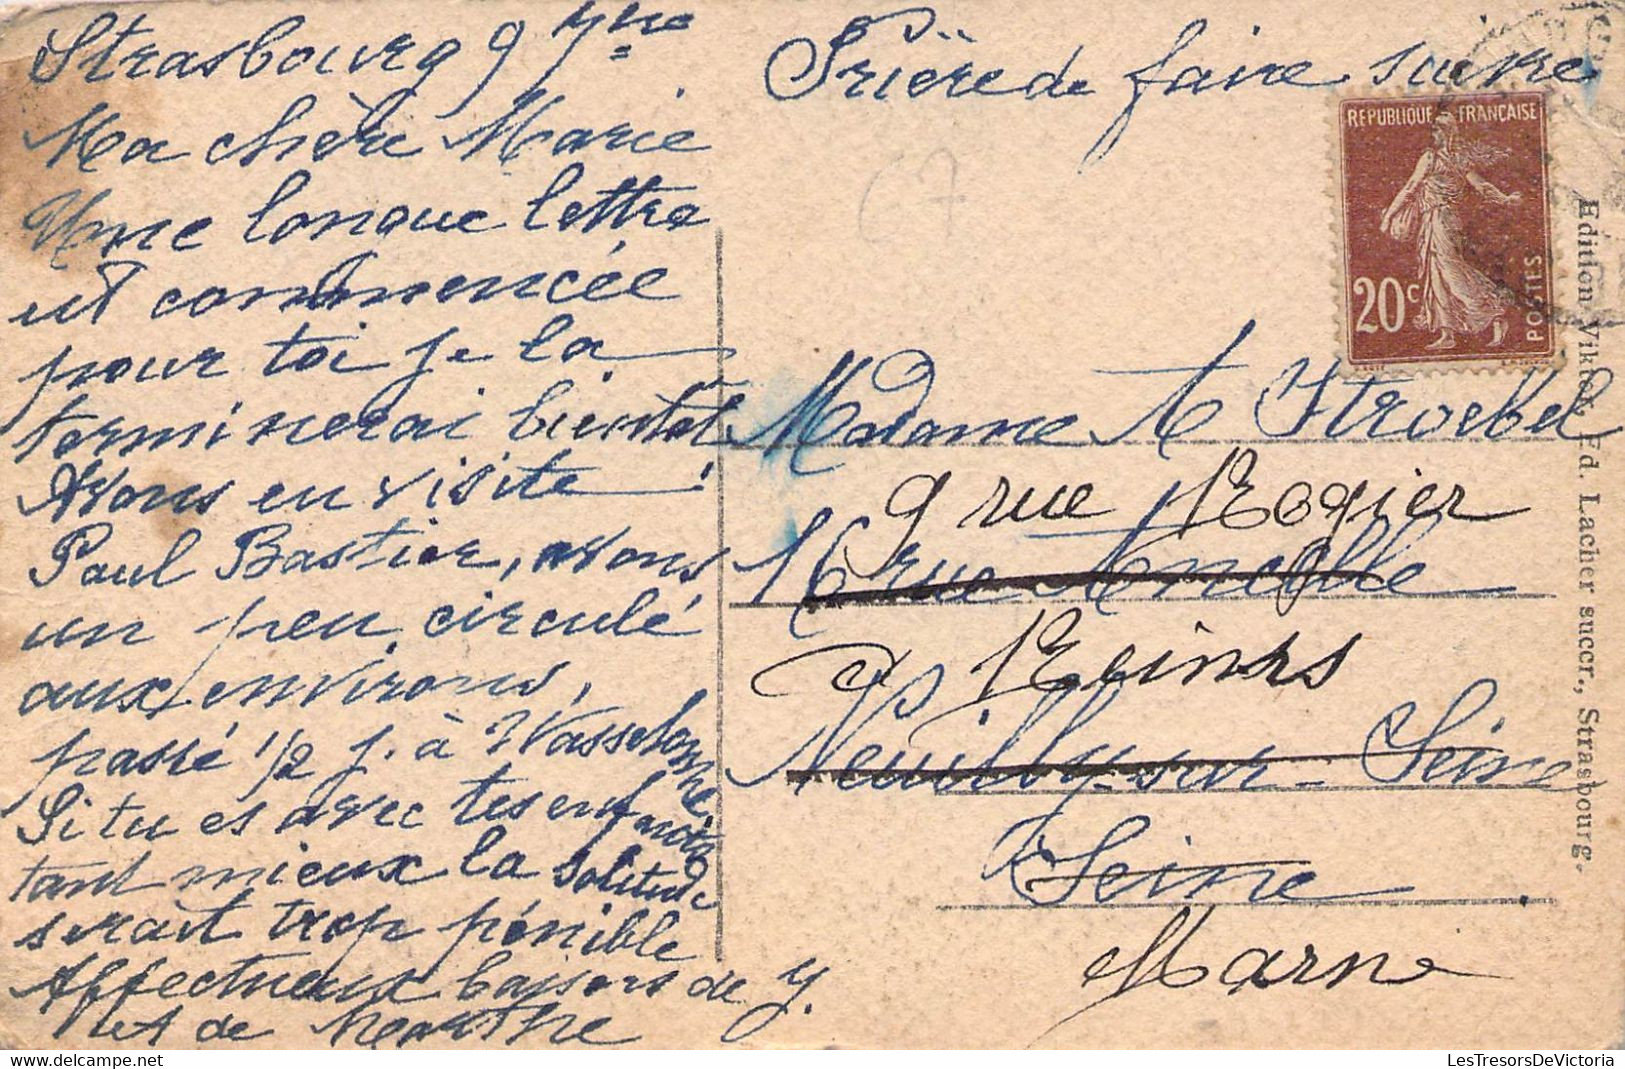 Strasbourg 9 7bre
Ma chère Marie
Une longue lettre
est commencée
pour toi je la
terminerai bientôt
Avons en visite
Paul Bastier, avons
un peu circulé
aux environs,
passé 1/2 j. à Wasselonne
Si tu es avec tes enfants
tant mieux la solitude
serait trop pénible
Affectueux baisers de y.
et de Marthe
Prière de faire suivre
67
REPUBLIQUE FRANÇAISE
20c
POSTES
Madame A Stroebel
9 rue Rogier
16 rue Ancelle
à Reims
Neuilly-sur-Seine
Seine
Marne
Edition Viktor Ed. Lacher succr., Strasbourg.
LesTresorsDeVictoria